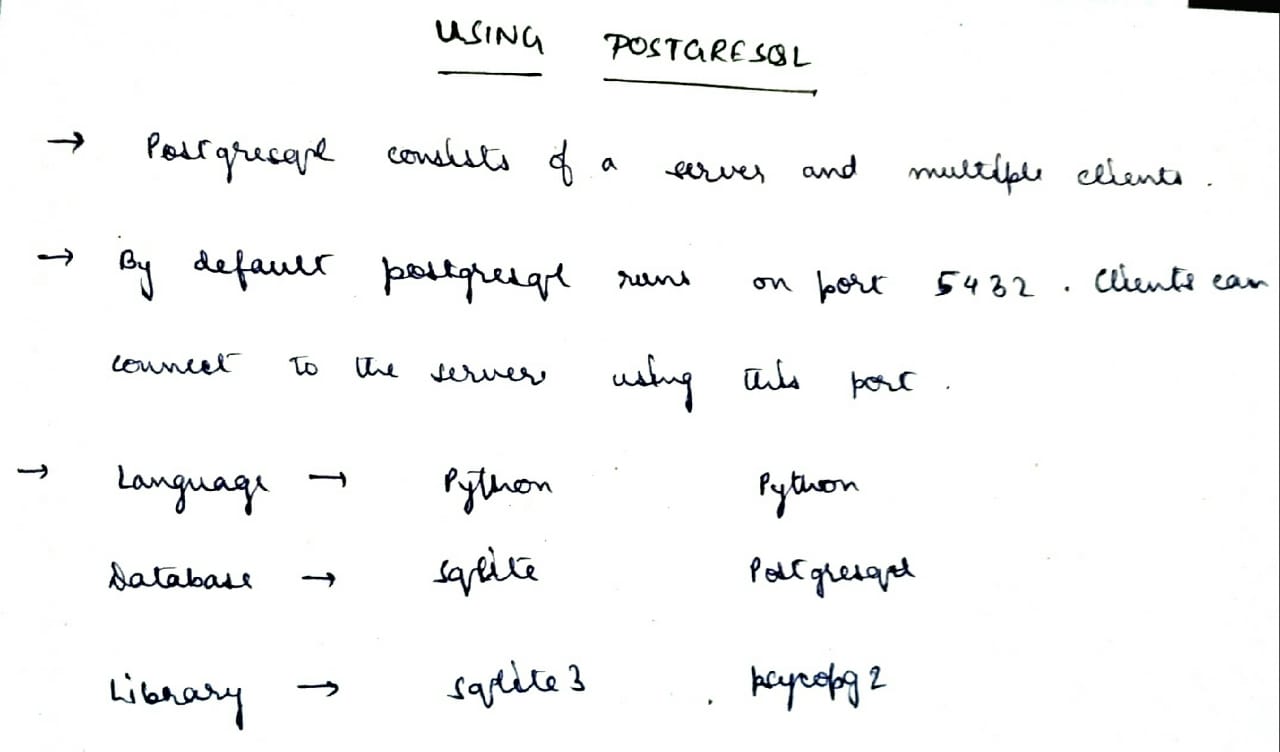 USING POSTGRESQL
→ Postgresql consists of a server and multiple clients.
→ By default postgresql runs on port 5432. Clients can
connect to the server using this port.
→ Language → Python Python
Database → sqlite Postgresql
Library → sqlite3 psycopg2